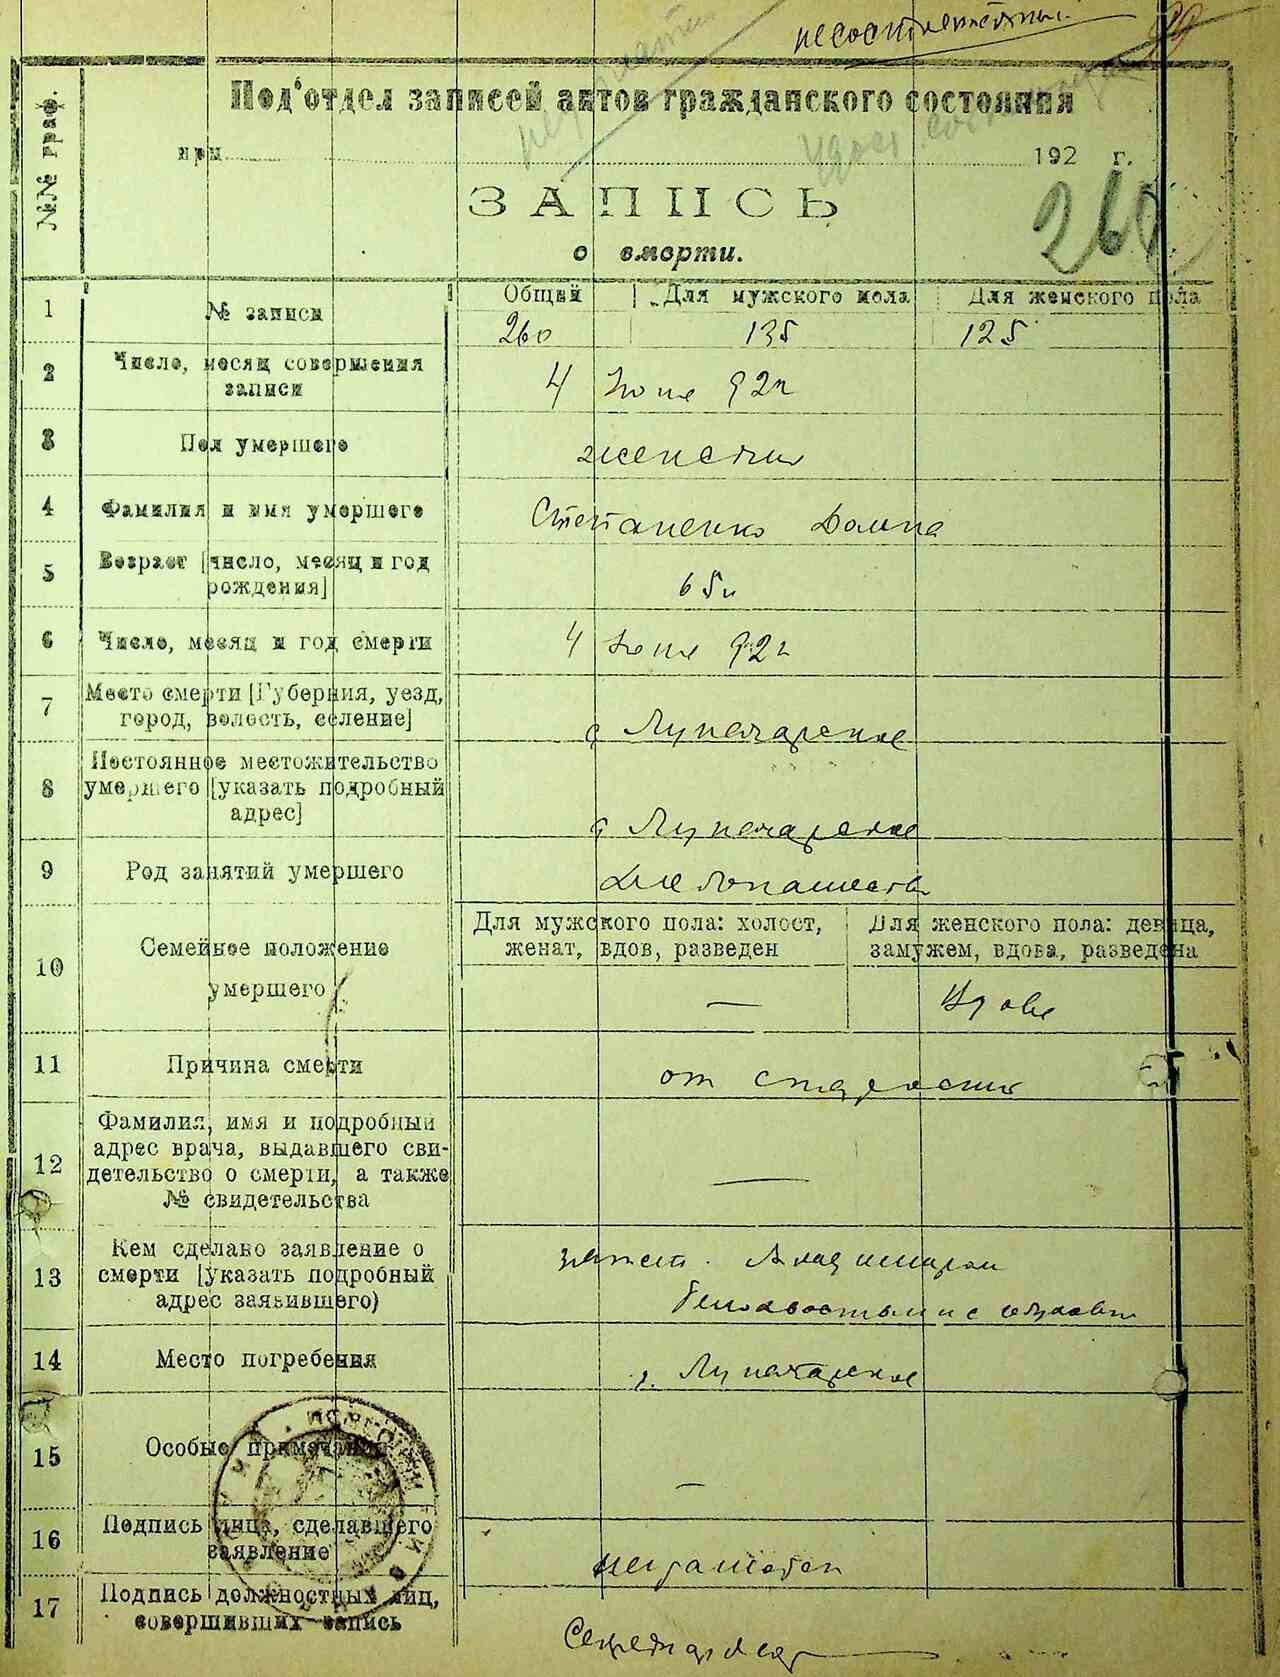 несостоятельный 99
Под'отдел записей актов гражданского состояния
№№ граф.
при 192 г.
ЗАПИСЬ
о смерти.
260
1 № записи Общий Для мужского пола Для женского пола
260 135 125
2 Число, месяц совершения
записи
4 Июня 92
3 Пол умершего женский
4 Фамилия и имя умершего Степаненко Домна
5 Возраст [число, месяц и год
рождения]
65л
6 Число, месяц и год смерти 4 Июня 92
7 Место смерти [Губерния, уезд,
город, волость, селение]
Луначарское
8 Постоянное местожительство
умершего [указать подробный
адрес]
Луначарское
9 Род занятий умершего Хлебопашество
10 Семейное положение
умершего
Для мужского пола: холост,
женат, вдов, разведен
Для женского пола: девица,
замужем, вдова, разведена
— Вдова
11 Причина смерти от старости
12 Фамилия, имя и подробный
адрес врача, выдавшего сви-
детельство о смерти, а также
№ свидетельства
—
13 Кем сделано заявление о
смерти [указать подробный
адрес заявившего)
Владимиром
14 Место погребения Луначарское
15 Особые примечания —
16 Подпись лица, сделавшего
заявление
неграмотен
17 Подпись должностных лиц,
совершивших запись